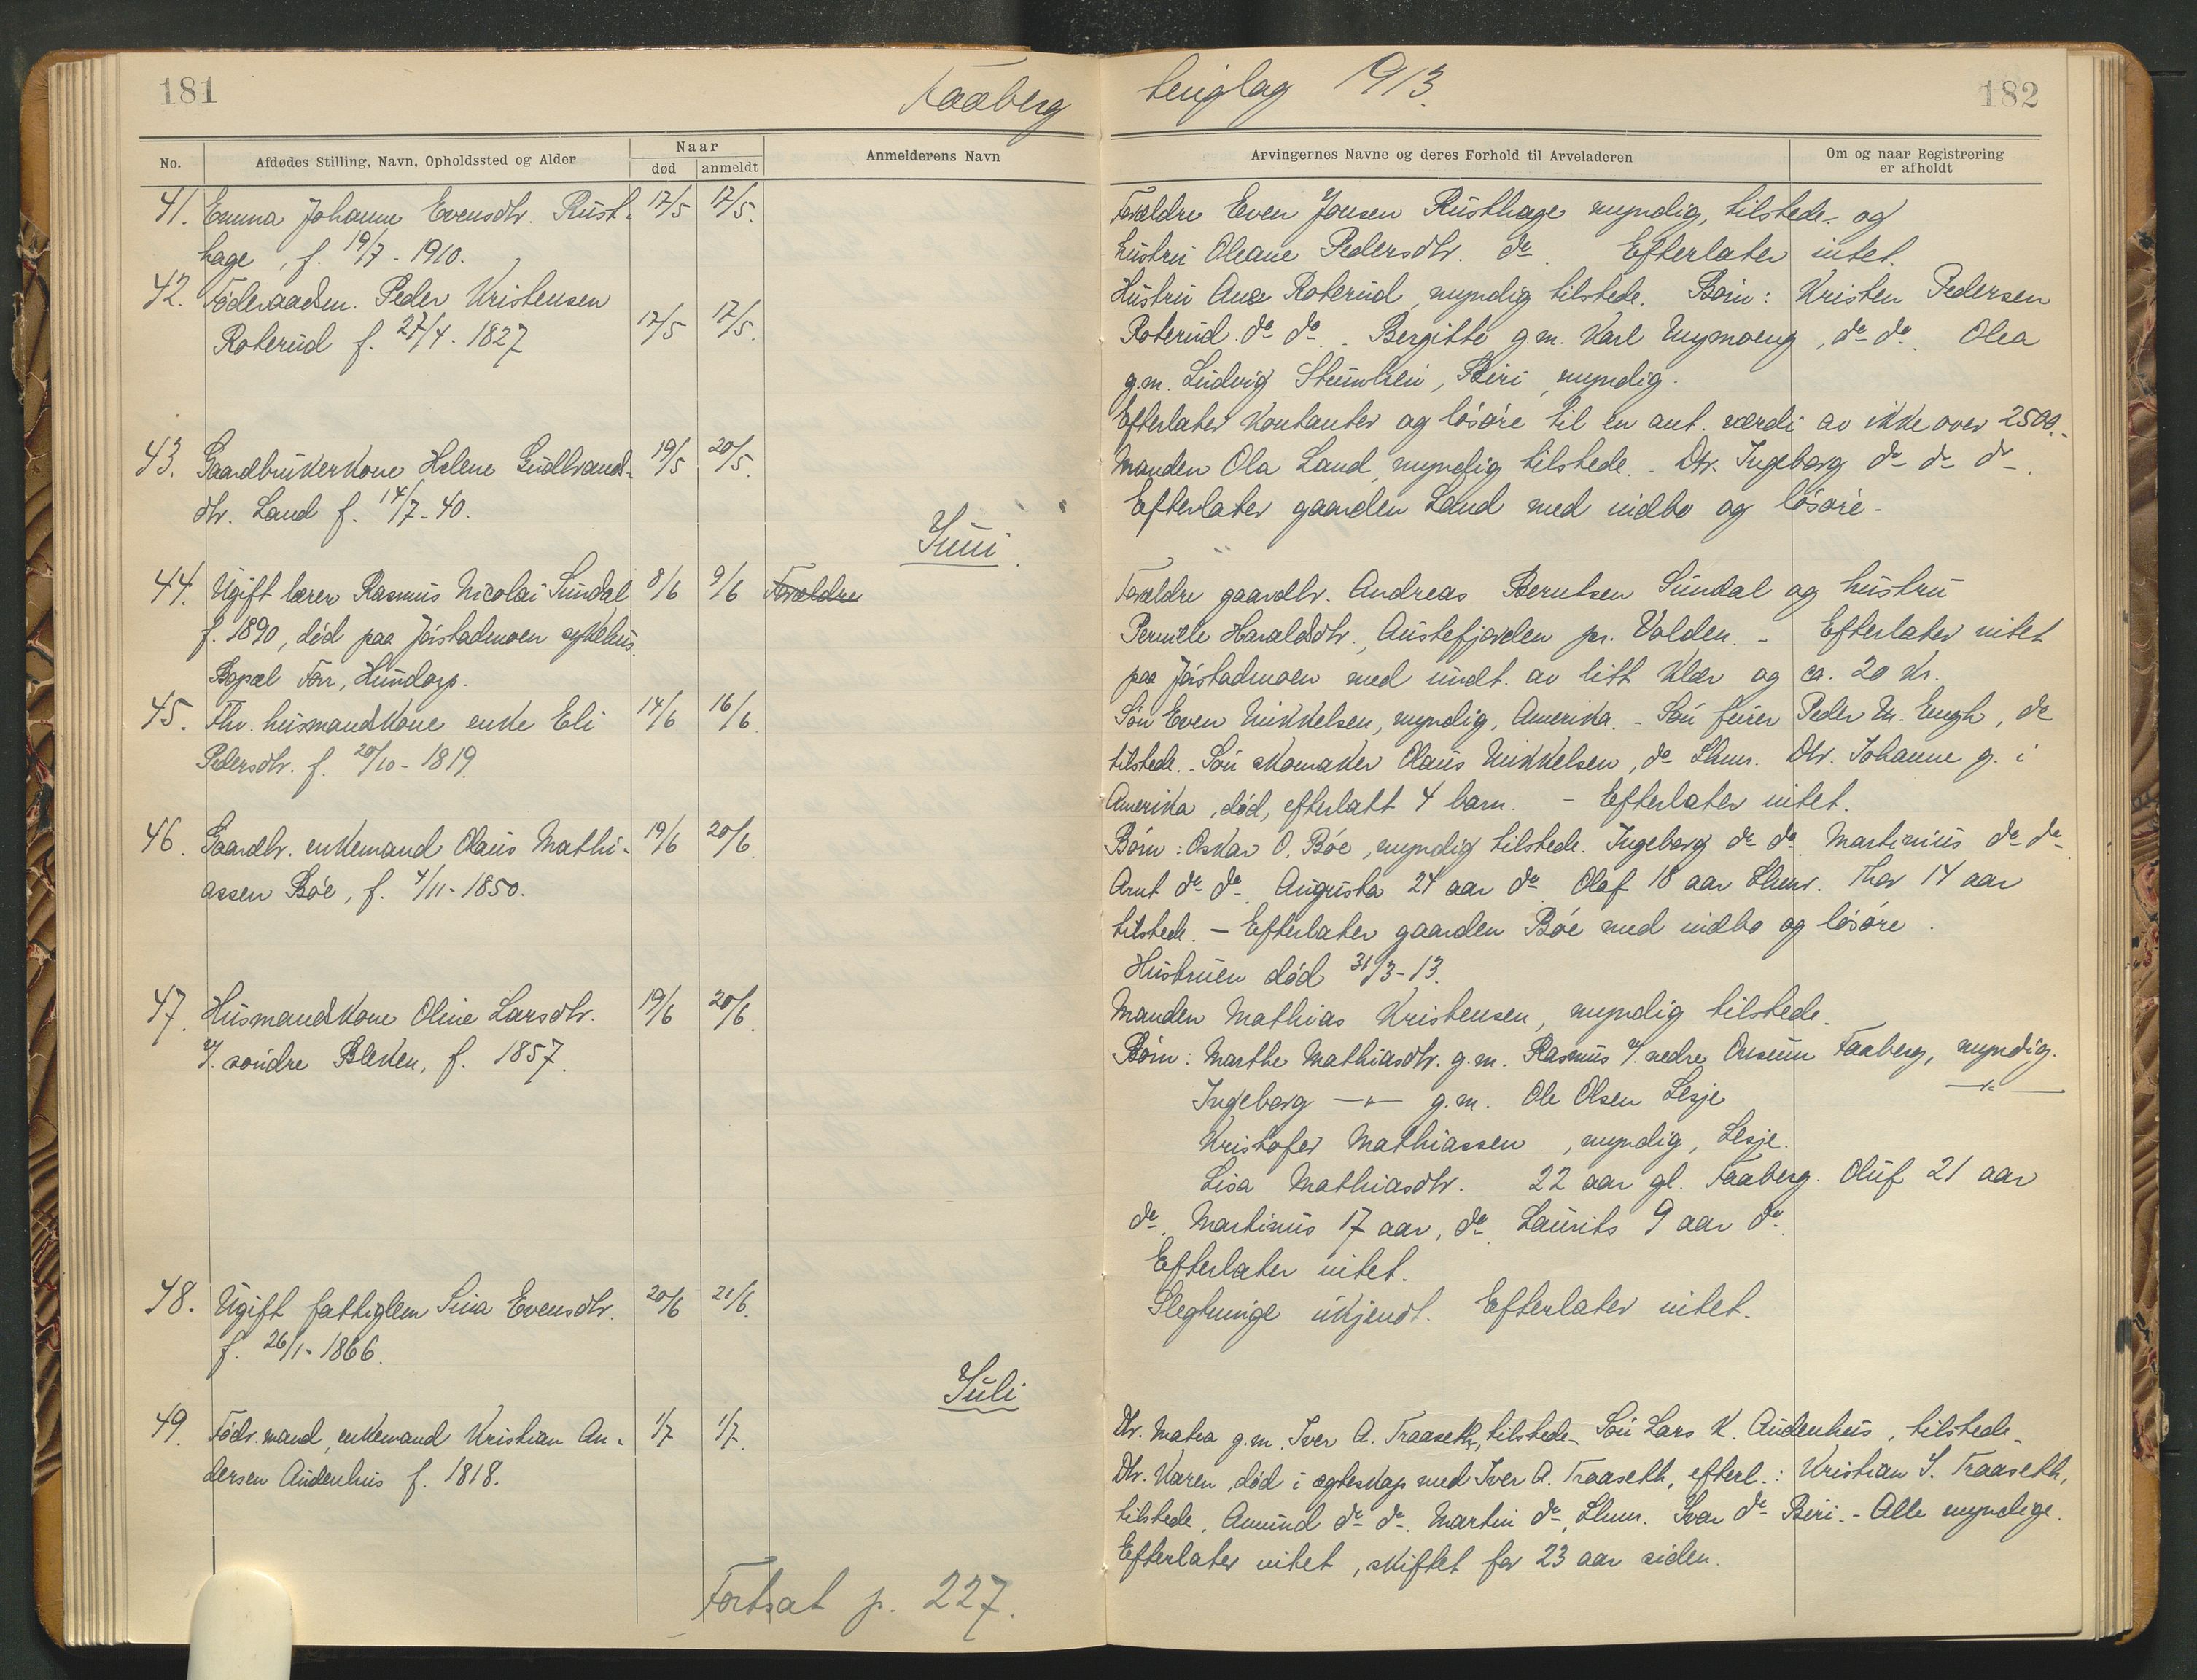 181
Faaberg tinglag 1913.
182
No.
Afdødes Stilling, Navn, Opholdssted og Alder
Naar
død
anmeldt
Anmelderens Navn
Arvingernes Navne og deres Forhold til Arveladeren
Om og naar Registrering
er afholdt
41. Emma Johanne Evensdtr. Rust- 17/5 17/5.
hage, f. 19/7-1910.
Forældre Even Jonsen Rusthage myndig, tilstede og
hustru Oleane Pedersdtr. do. Efterlater intet.
42. Føderaadsm. Peder Kristensen
Roterud f. 27/4-1827 17/5 17/5.
Hustru Ane Roterud, myndig tilstede. Børn: Kristen Pedersen
Roterud do do. Bergitte g.m. Karl Nymoeng, do do. Olea
g.m. Ludvig Stumlien, Biri, myndig.
Efterlater Kontanter og løsøre til en ant. værdi av ikke over 2500.-
43. Gaardbrukerkone Helene Gudbrands- 19/5 20/5.
dtr. Land f. 14/7-40.
Manden Ola Land, myndig tilstede. - Dtr. Ingeborg do do do.
Efterlater gaarden Land med indbo og løsøre.
Juni.
44. Ugift lærer Rasmus Nicolai Sundal 8/6 9/6 Forældre
f. 1890, død paa Jørstadmoen sykehus.
Bopæl Forr, Hundorp.
Forældre gaardbr. Andreas Berntsen Sundal og hustru
Pernille Haraldsdtr., Austefjorden pr. Volden. - Efterlater intet
paa Jørstadmoen med undt. av litt klær og ca. 20 kr.
45. Fhv. husmandskone enke Eli 14/6 16/6.
Pedersdtr. f. 20/10-1819.
Søn Even Mikkelsen, myndig, Amerika. - Søn furer Peder M. Engh, do
tilstede. - Søn skomaker Olaus Mikkelsen, do Lhmr. Dtr. Johanne g. i
Amerika, død, efterlatt 4 barn. - Efterlater intet.
46. Gaardbr. enkemand Olaus Mathi- 19/6 20/6.
assen Bøe, f. 4/11-1850.
Børn: Oskar O. Bøe, myndig tilstede. Ingeborg do do. Martinius do do
Arnt do do. Augusta 24 aar do. Olaf 18 aar Lhmr. Thor 14 aar
tilstede. - Efterlater gaarden Bøe med indbo og løsøre.
Hustruen død 31/3-13.
47. Husmandskone Oline Larsdtr. 19/6 20/6.
u/. søndre Bleken, f. 1857.
Manden Mathias Kristensen, myndig tilstede.
Børn: Marthe Mathiasdtr. g.m. Rasmus u/. nedre Onsum Faaberg, myndig.
Ingeborg —"— g.m. Ole Olsen Lesje —"—
Kristofer Mathiassen, myndig, Lesje.
Lisa Mathiasdtr. 22 aar gl. Faaberg. Oluf 21 aar
do. Martinus 17 aar, do. Laurits 9 aar do.
Efterlater intet.
48. Ugift fattiglem Sina Evensdtr. 20/6 21/6.
f. 26/1-1866.
Slegtninge ukjendt. Efterlater intet.
Juli
49. Fødr.mand, enkemand Kristian An- 1/7 1/7.
dersen Audenhus f. 1818.
Dtr. Matea g.m. Iver A. Traaseth, tilstede. Søn Lars K. Audenhus, tilstede.
Dtr. Karen, død i ægteskap med Iver A. Traaseth, efterl.: Kristian I. Traaseth,
tilstede, Amund do do. Martin do, Lhmr. Ivar do Biri. - Alle myndige.
Efterlater intet, skiftet for 23 aar siden.
Fortsat p. 227.